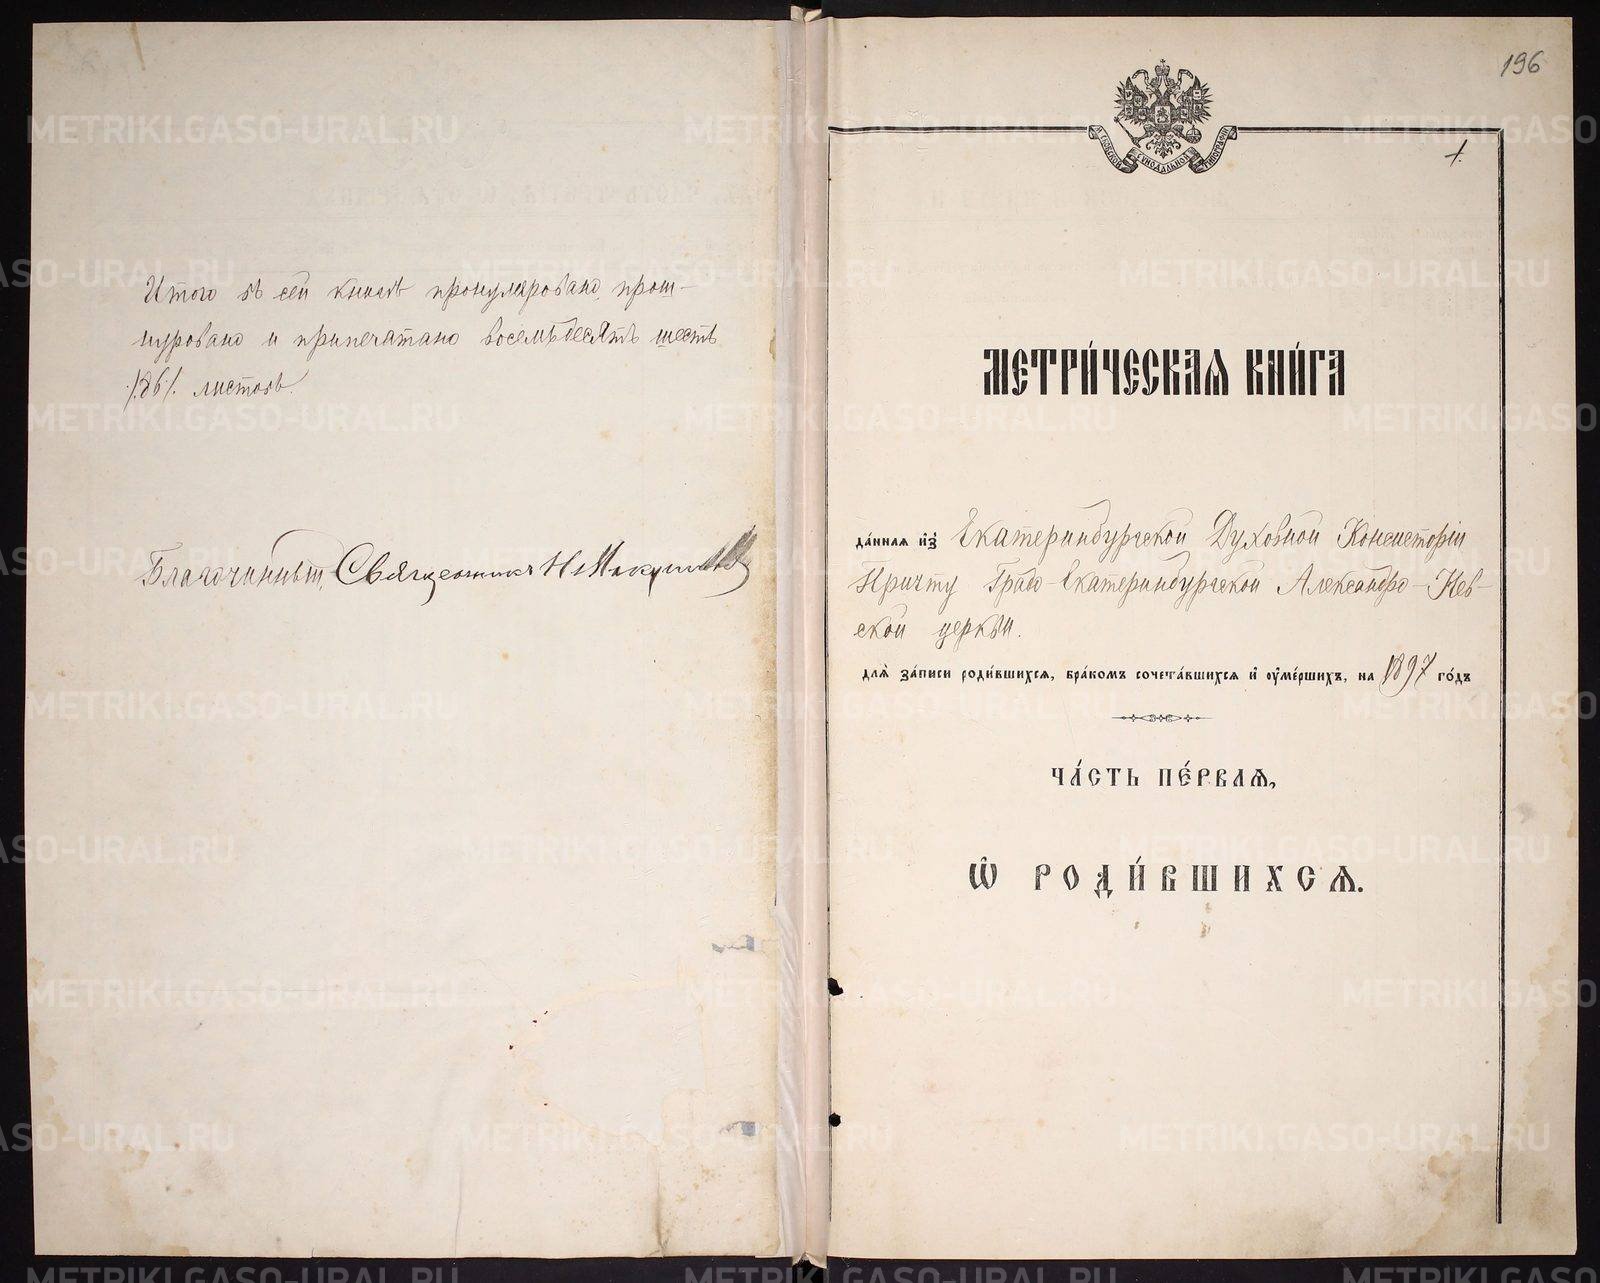 Итого въ сей книгѣ пронумеровано, прош-
нуровано и припечатано восемьдесятъ шесть
/86/. листовъ.
Благочинный, Священникъ Н.
196
1.
МЕТРИ́ЧЕСКАѦ КНИ́ГА
да́ннаѧ и҆з̾ Екатеринбургской Духовной Консисторіи
Причту Градо-Екатеринбургской Александро-Нев-
ской церкви.
длѧ̀ за́писи роди́вшихсѧ, бра́комъ сочета́вшихсѧ и҆ оу҆ме́ршихъ, на 1897 го́дъ
ЧА́СТЬ ПЕ́РВАѦ,
Ѡ҆ РОДИ́ВШИХСѦ.
METRIKI.GASO-URAL.RU